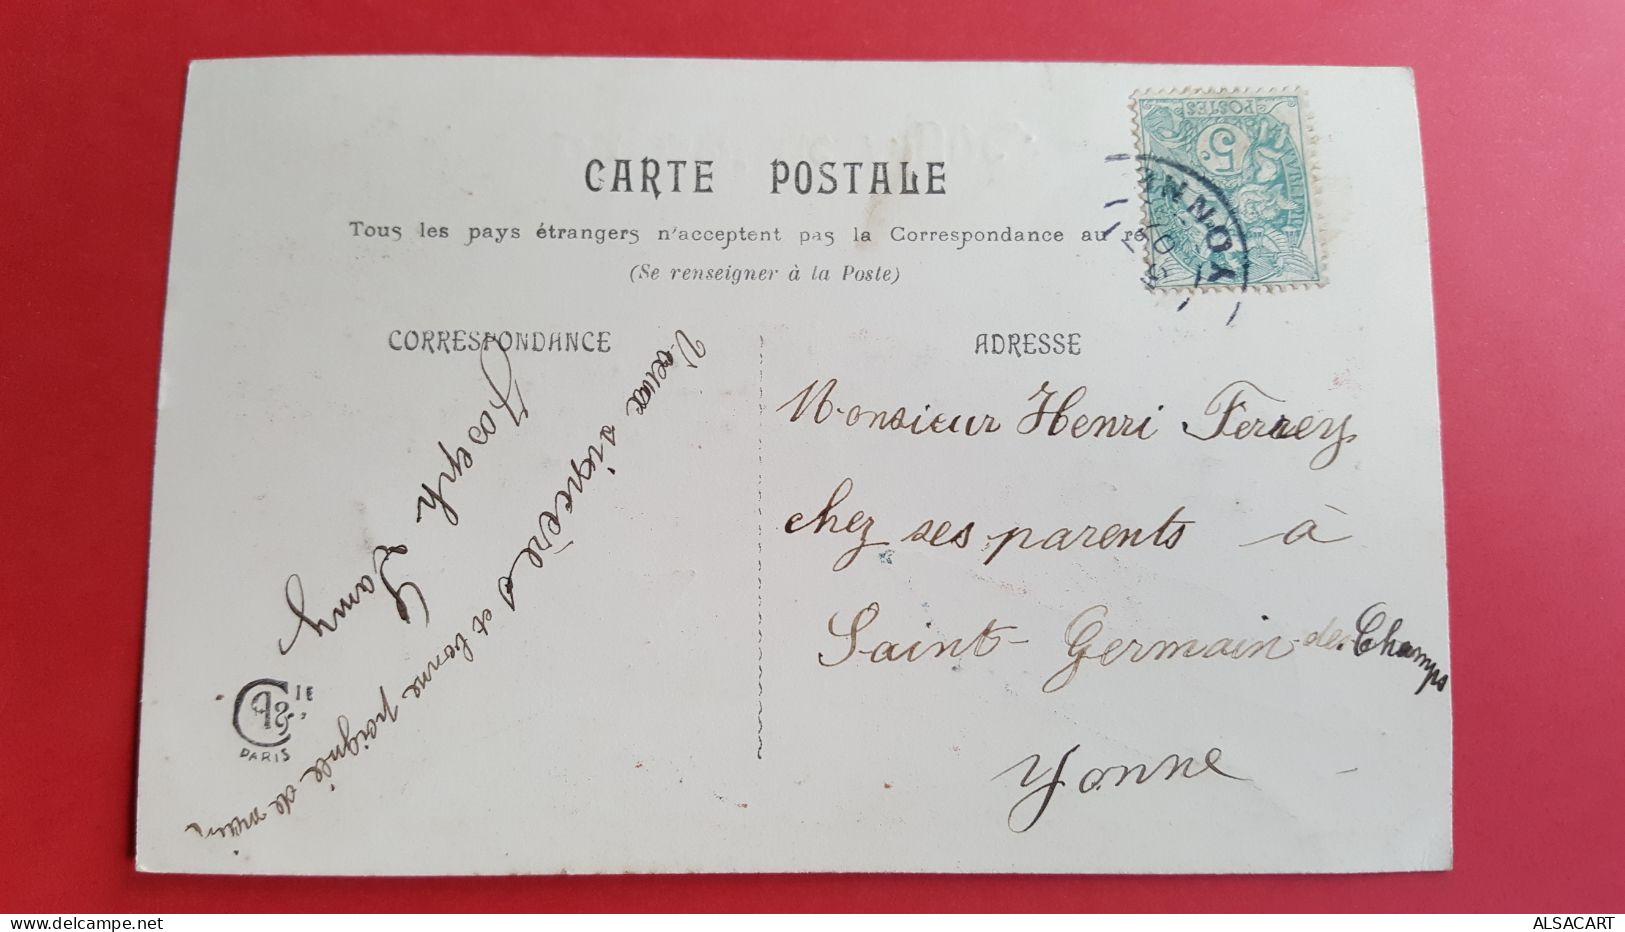 CARTE POSTALE
Tous les pays étrangers n'acceptent pas la Correspondance au re
(Se renseigner à la Poste)
CORRESPONDANCE
ADRESSE
POSTES
5
YONNE
Vœux sincères et bonne poignée de main
Joseph Lamy
Monsieur Henri Ferrey
chez ses parents à
Saint-Germain des Champs
Yonne
IE
PARIS
ALSACART